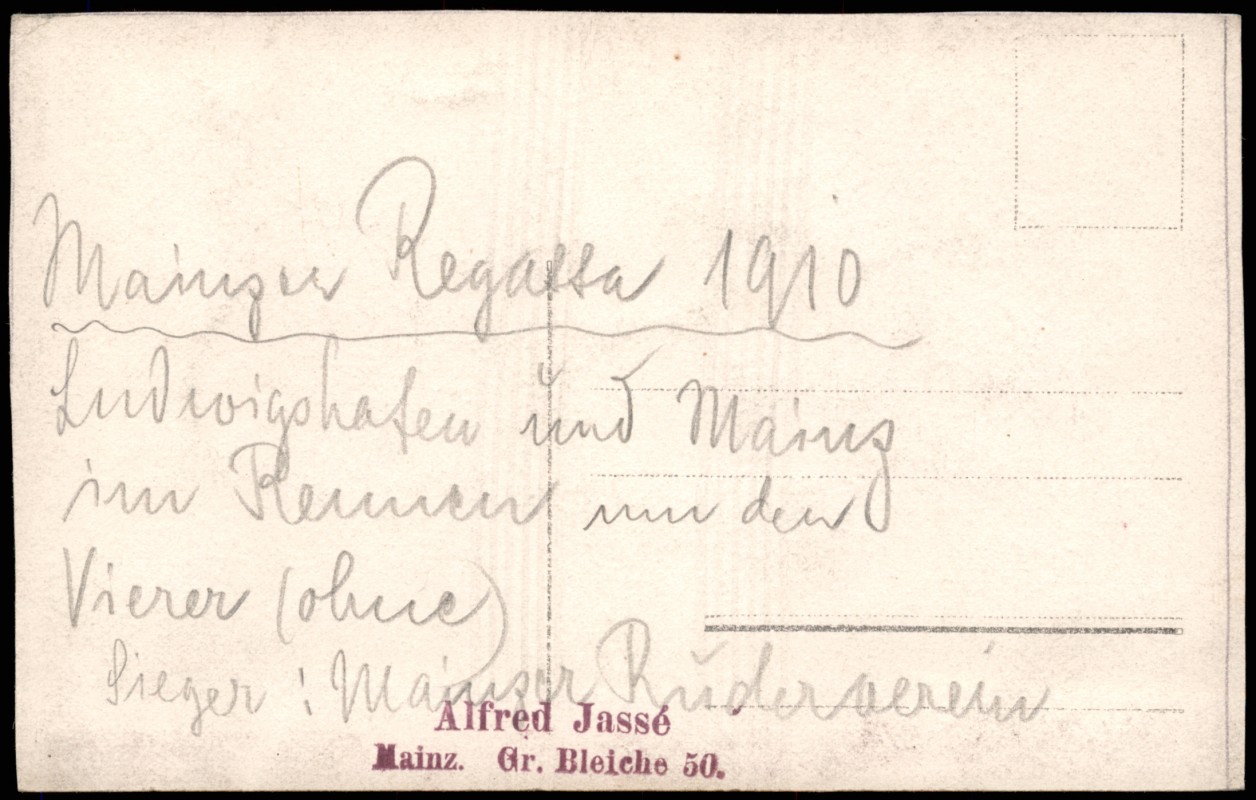 Mainzer Regatta 1910
Ludwigshafen und Mainz
im Rennen um den
Vierer (ohne)
Sieger: Mainzer Ruderverein
Alfred Jassé
Mainz. Gr. Bleiche 50.